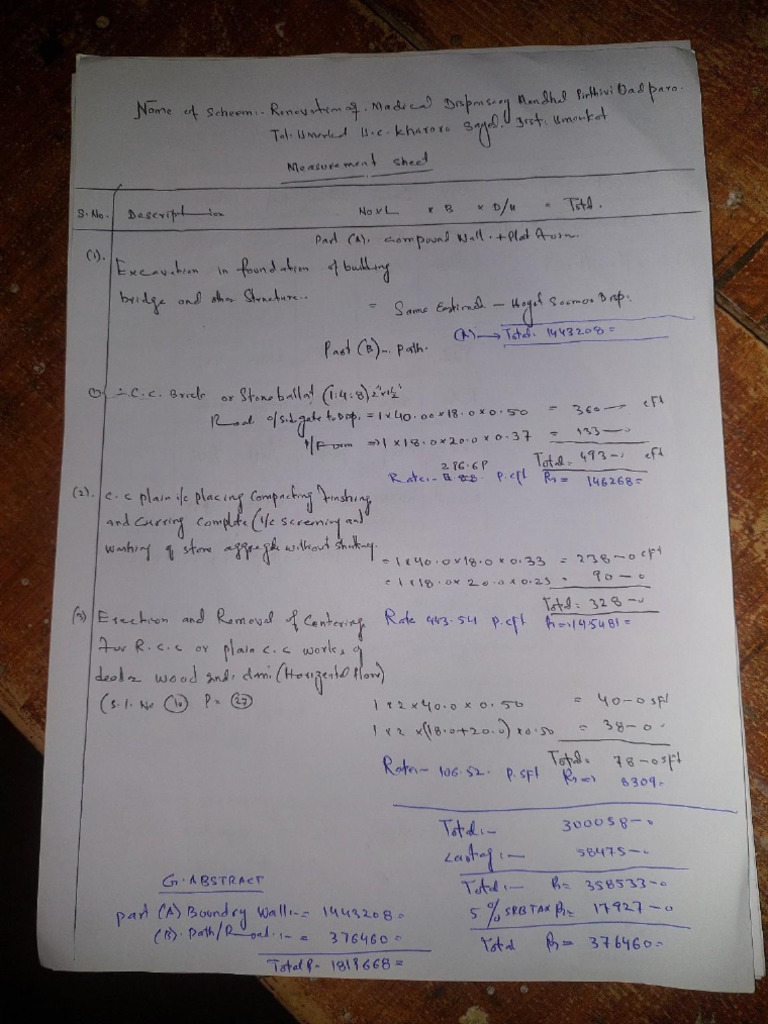 Name of Scheem:- Renovation of Madical Dispensory Mandhal Pirthivi Dadparo.
Tal: Umerkot U.C. Kharoro Sayed. Dist: Umerkot
Measurement Sheet
S.No. Description No x L x B x D/H = Total.
Part (A). Compound Wall. + Plat Form
(1). Excavation in foundation of building
bridge and other Structure.. = Same Estimate -
(A) → Total: 1443208=
Part (B)-. Path.
(1) C.C. Brick or Stone ballast (1:4:8) 2"x1½"
Road o/side gate to Disp. = 1x40.00x18.0x0.50 = 360-0 cft
P/Form => 1x18.0x20.0x0.37 = 133-0
Total= 493-0 cft
Rate:- 296.68 P.cft Rs= 146268=
(2). C.C plain i/c placing Compacting Finshing
and Curring complete (i/c Screening and
washing of stone aggregate without shuttring.
= 1x40.0x18.0x0.33 = 238-0 cft
= 1x18.0x20.0x0.25 = 90-0
Total= 328-0
Rate 443.54 P.cft Rs=145481=
(3) Erection and Removal of Centering
For R.C.C or plain C.C works of
deodar wood (Horizental floor)
(S.I. No (16) P= (27)
1x2x40.0x0.50 = 40-0 sft
1x2x(18.0+20.0)x0.50 = 38-0
Total= 78-0 sft
Rate:- 106.52. P.sft Rs=> 8309=
Total:- 300058-0
58475-0
Total:- Rs= 358533-0
5% SRB TAX Rs= 17927-0
Total Rs= 376460=
G. ABSTRACT
part (A) Boundry Wall:-= 1443208=
(B). Path/Road.:- = 376460=
Total Rs- 1819668=